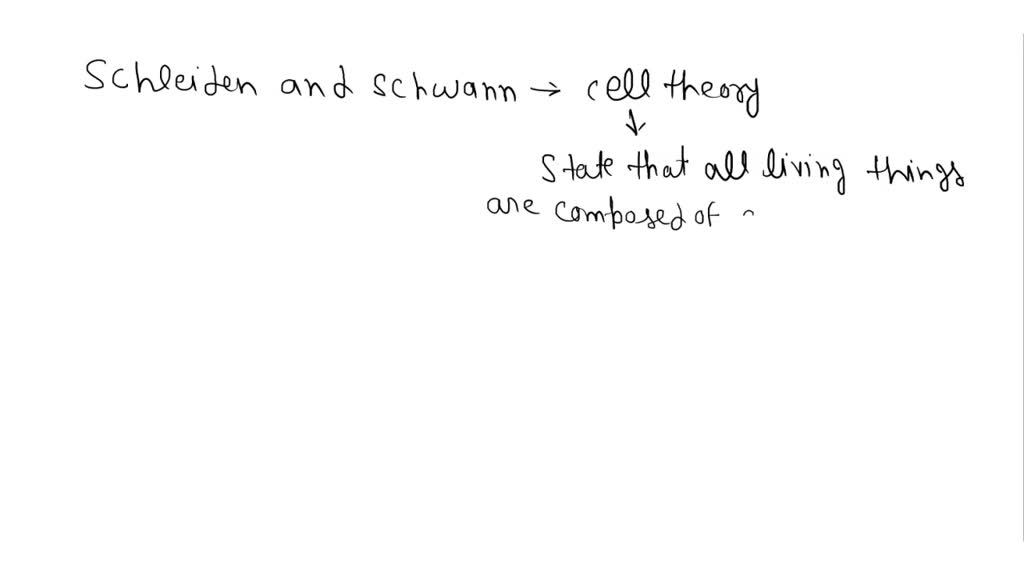 Schleiden and schwann → cell theory
↓
State that all living things
are composed of